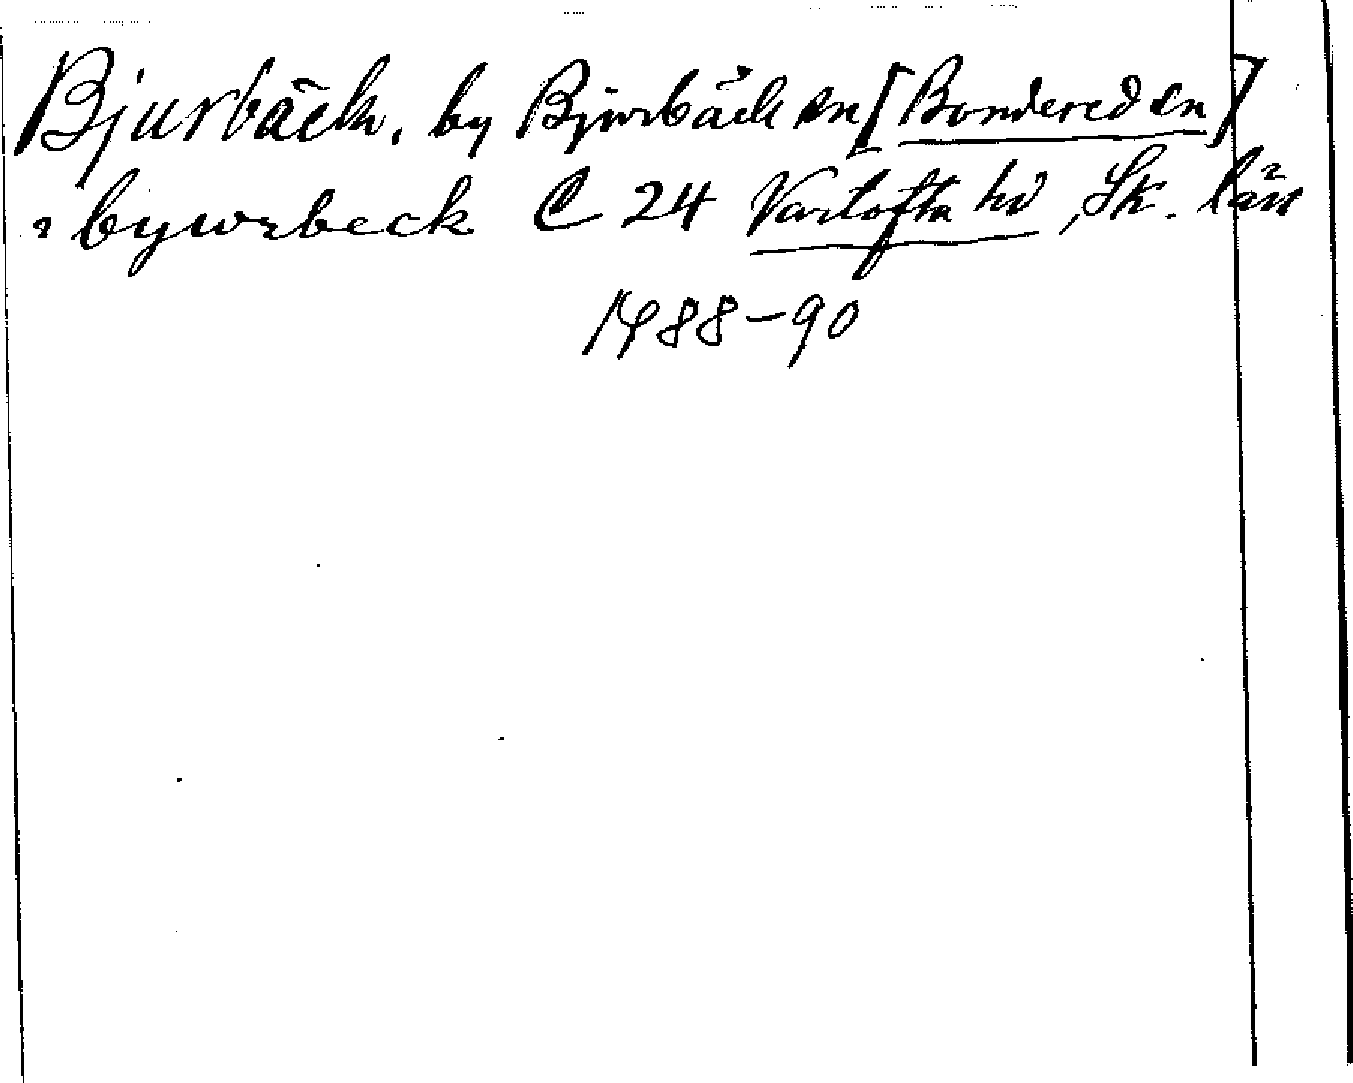 Bjurbäck, by Bjurbäck sn [Bondered sn]
i bywrbeck C 24 Vartofta hd, Sk. län
1488-90